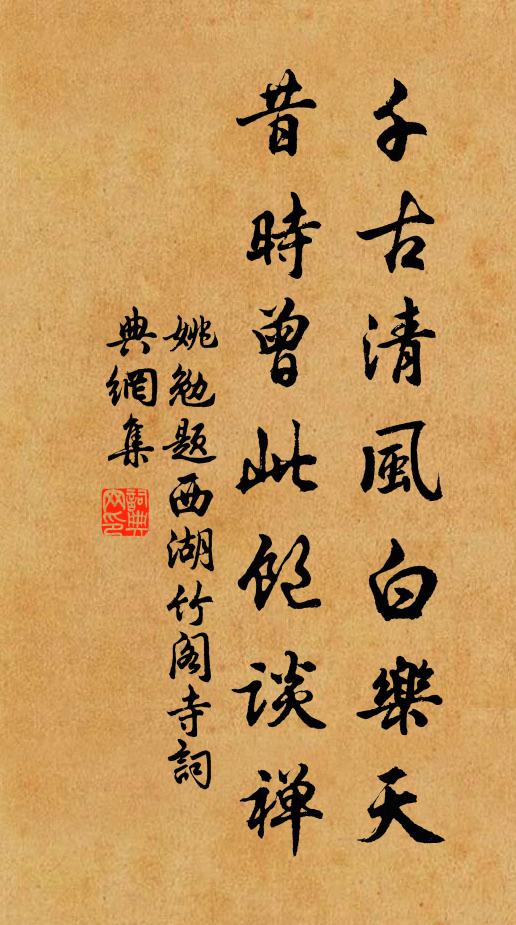 千古清風白樂天
昔時曾此飽談禪
姚勉題西湖竹閣寺詞
典網集
詞典
网印